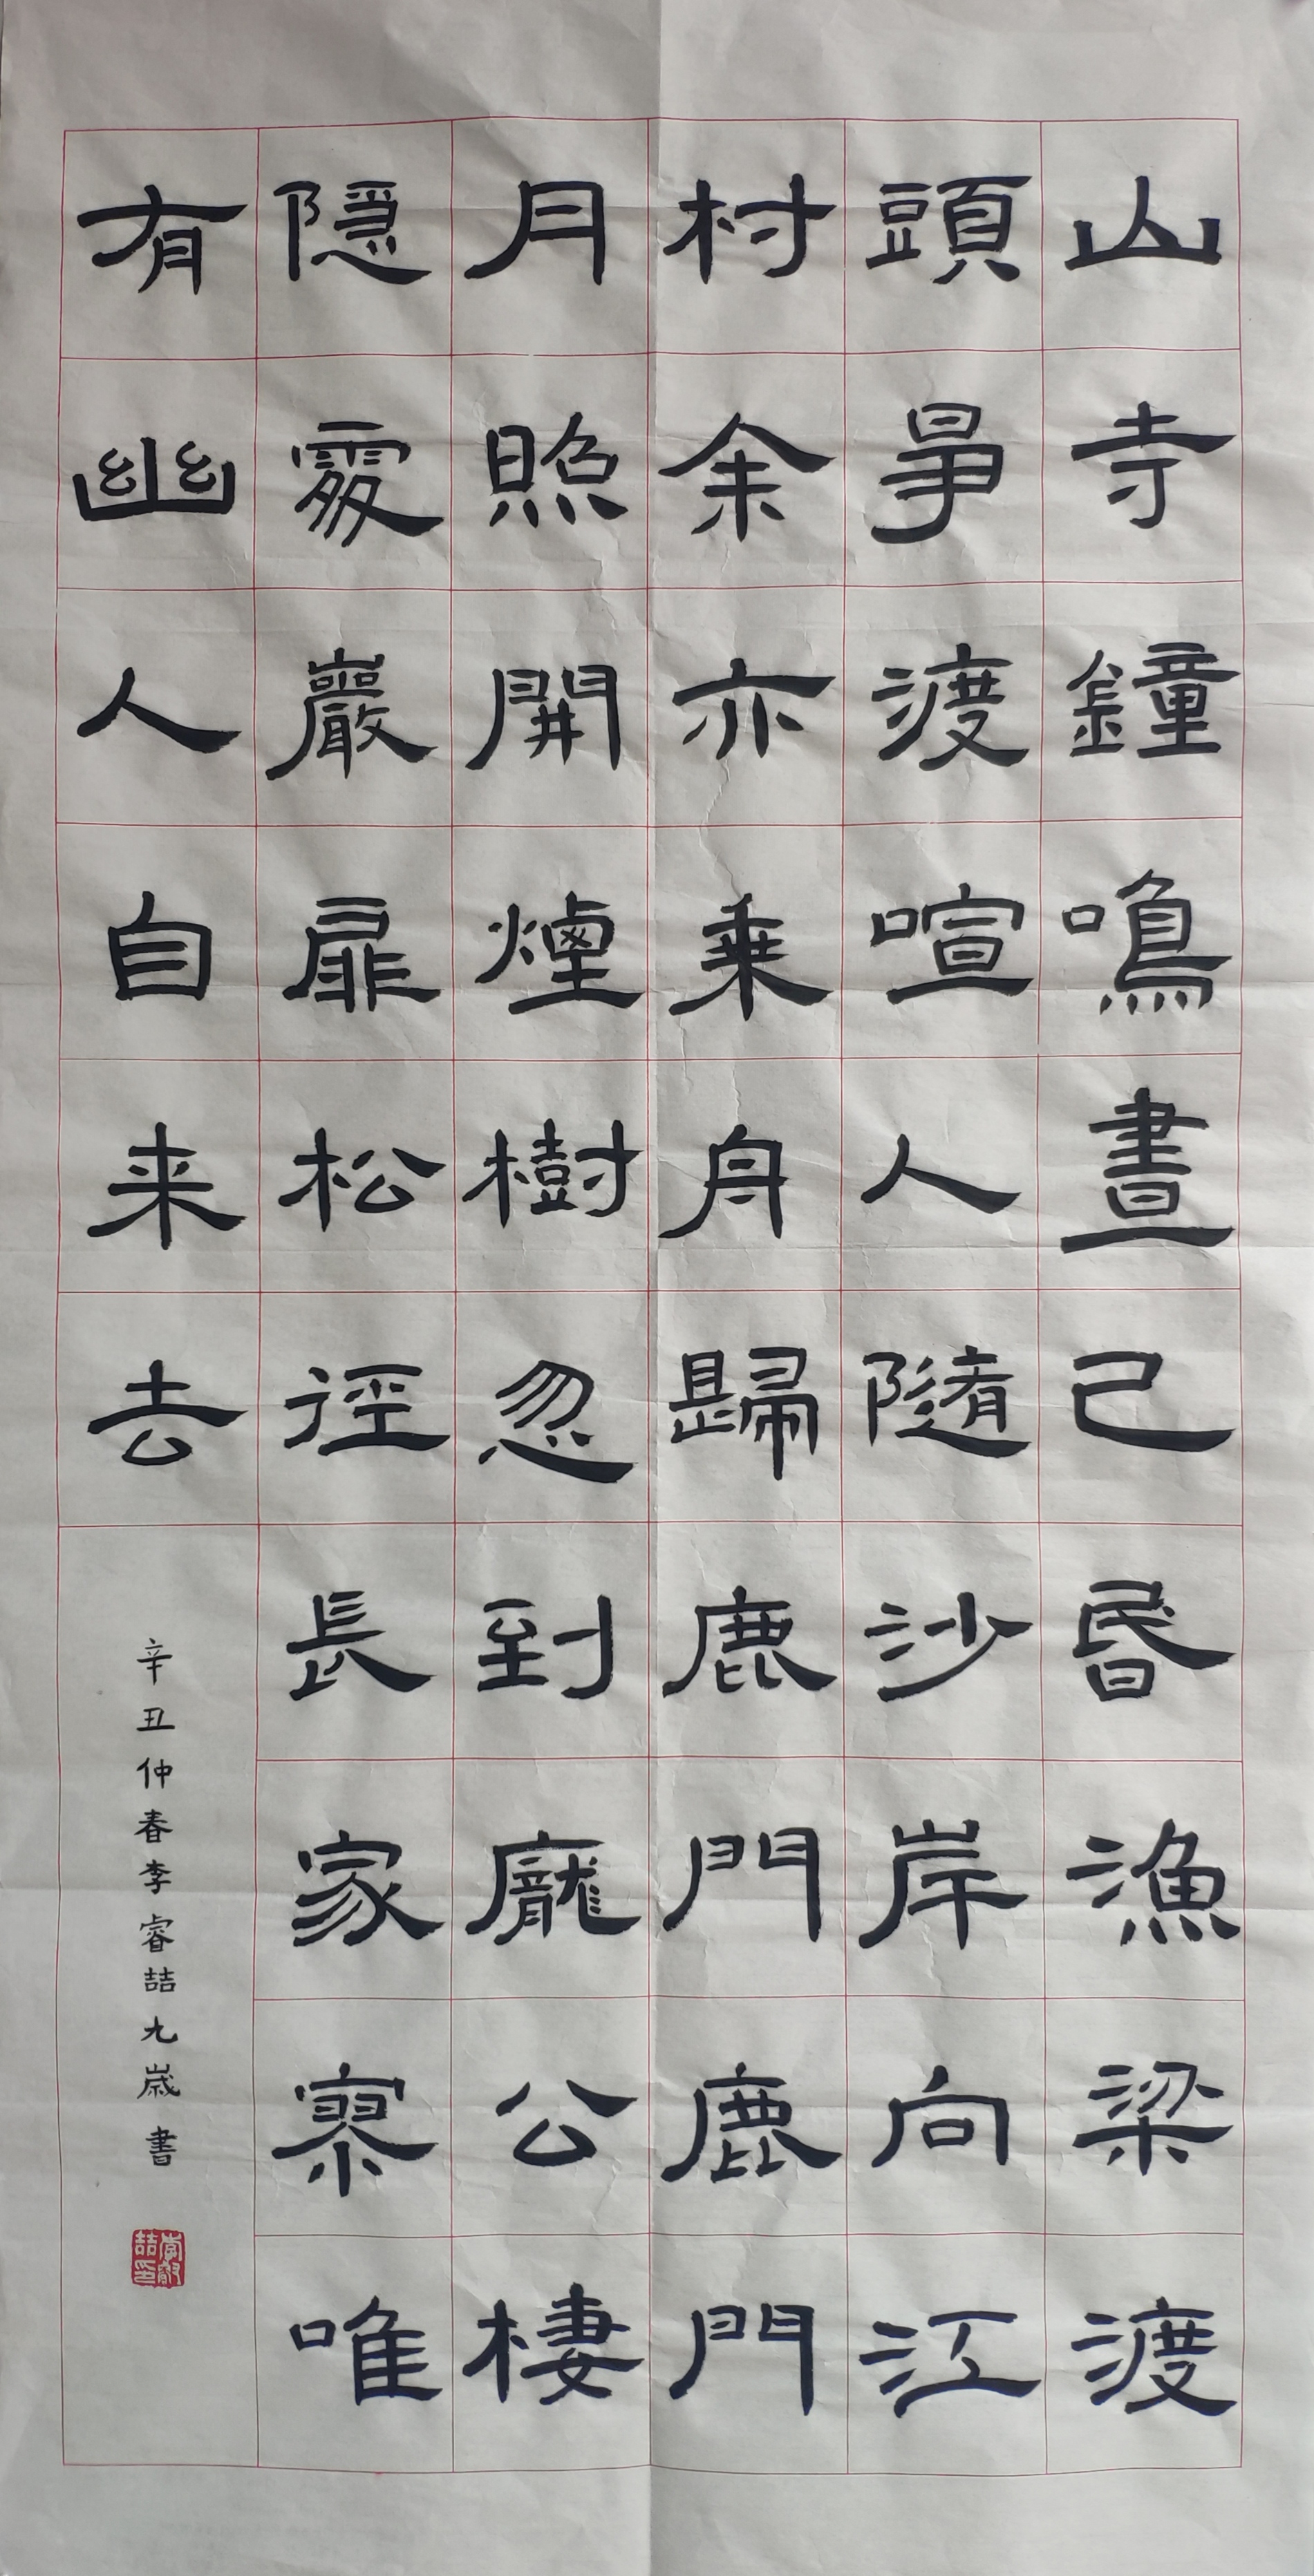 山寺鐘鳴晝已昏漁梁渡
頭爭渡喧人隨沙岸向江
村余亦乗舟歸鹿門鹿門
月照開煙樹忽到龐公棲
隱處巖扉松徑長家寥唯
有幽人自来去
辛丑仲春李睿喆九歲書
李睿喆印